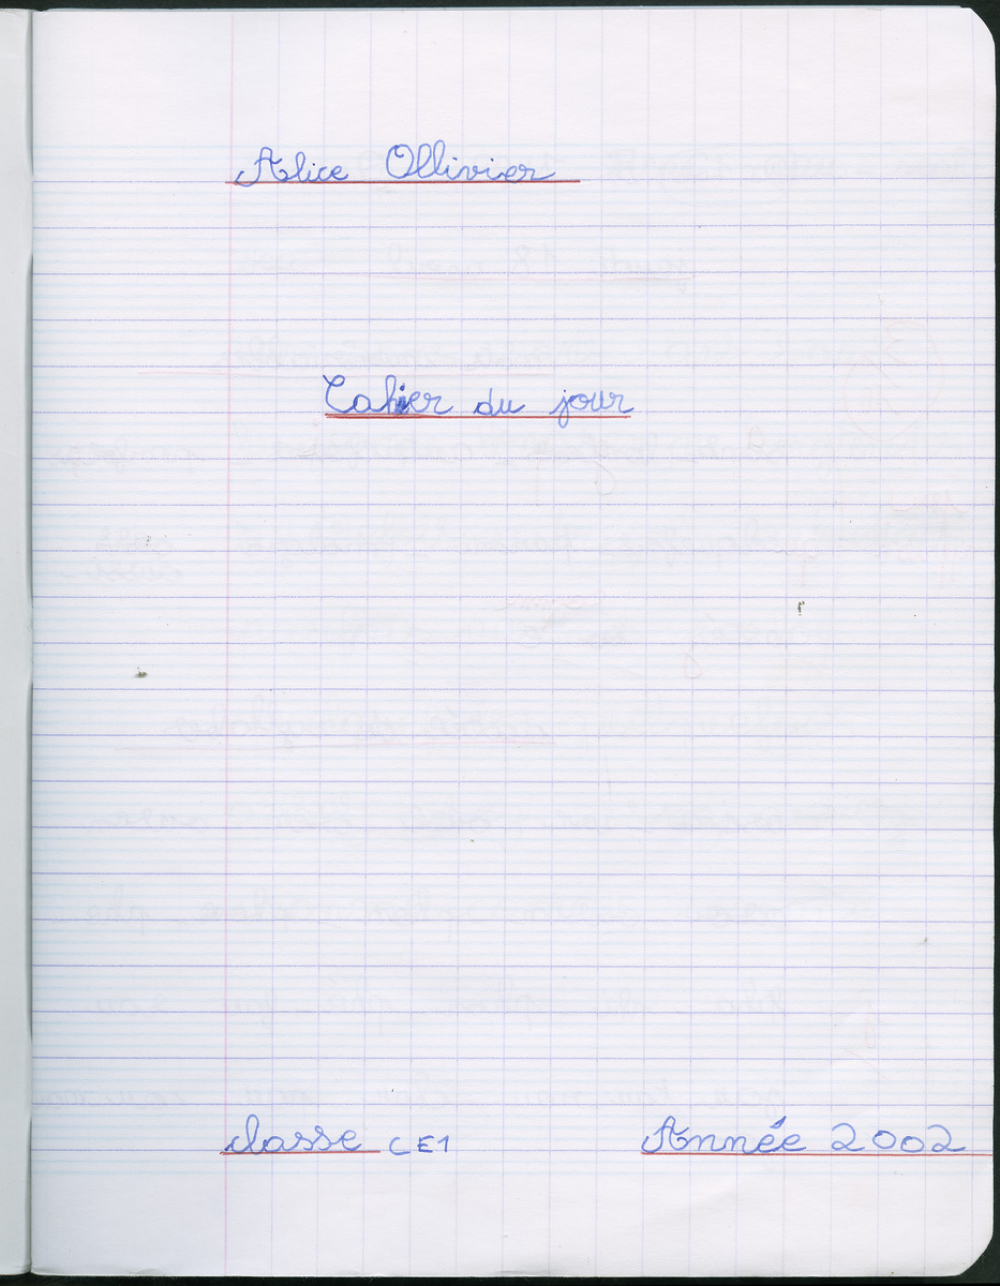 Alice Ollivier
Cahier du jour
classe CE1 Année 2002